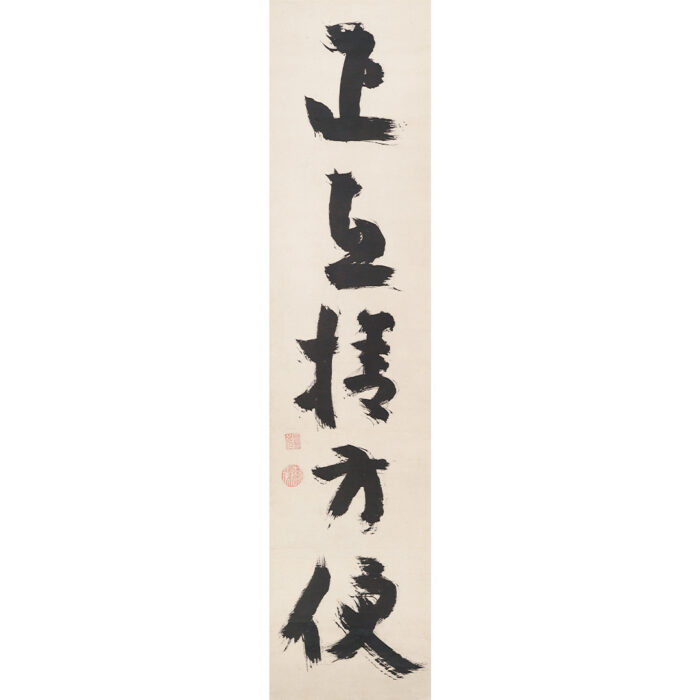 正直捨方便